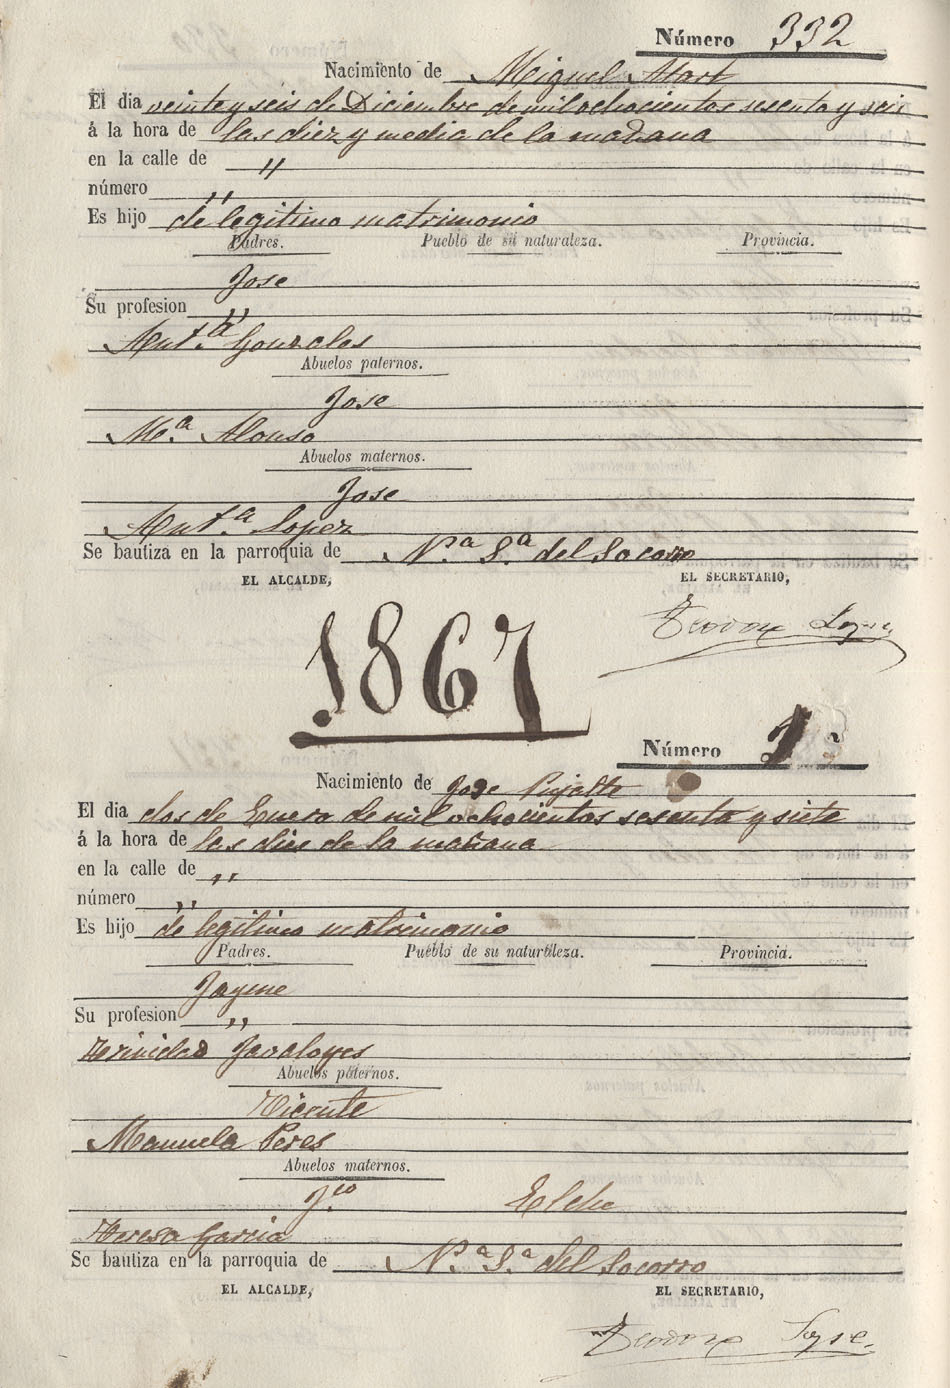 Número 332
Nacimiento de Miguel Mart
El día veinte y seis de Diciembre de mil ochocientos sesenta y seis
á la hora de las diez y media de la mañana
en la calle de "
número "
Es hijo de legitimo matrimonio
Padres. Pueblo de su naturaleza. Provincia.
Jose
Su profesion "
Ant.ª Gonzales
Abuelos paternos.
Jose
M.ª Alonso
Abuelos maternos.
Jose
Ant.ª Lopez
Se bautiza en la parroquia de N.ª S.ª del Socorro
EL ALCALDE, EL SECRETARIO,
Teodoro
1867
Número 1
Nacimiento de Jose Pujalte
El dia dos de Enero de mil ochocientos sesenta y siete
á la hora de las dies de la mañana
en la calle de "
número "
Es hijo de legitimo matrimonio
Padres. Pueblo de su naturaleza. Provincia.
Jayme
Su profesion "
Terinidad Javaloyes
Abuelos paternos.
Vicente
Manuela Peres
Abuelos maternos.
J.co Elche
Teresa Garcia
Se bautiza en la parroquia de N.ª S.ª del Socorro
EL ALCALDE, EL SECRETARIO,
Teodoro